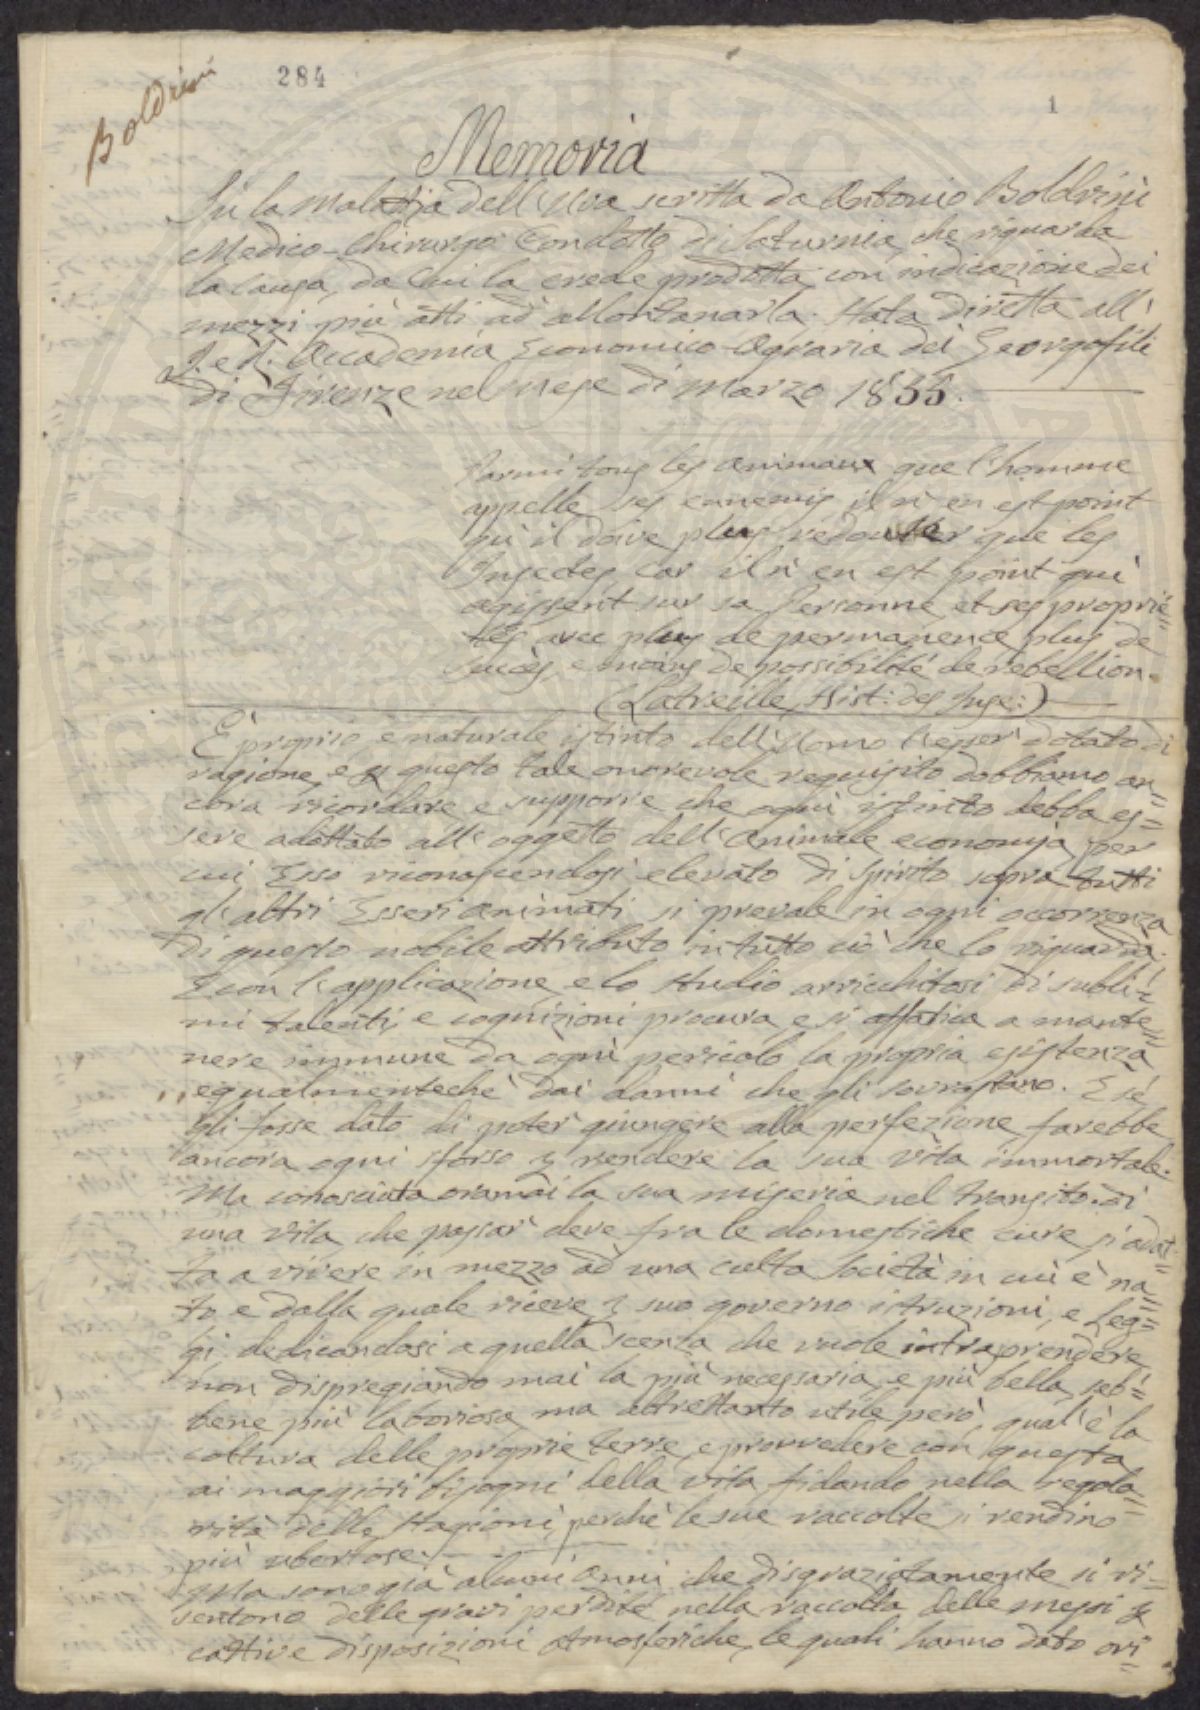 Boldrini
284
1
Memoria
Su la Malattia dell'Uva scritta da Antonio Boldrini
Medico-Chirurgo Condotto di Saturnia, che riguarda
la causa, da Cui la crede prodotta, con indicazione dei
mezzi più atti ad allontanarla. Stata diretta all'
I. e R. Accademia Economico-Agraria dei Georgofili
di Firenze nel Mese di Marzo 1855.
Parmi tous les animaux que l'homme
appelle ses ennemis il n'en est point
qu'il doive plus redouter que les
Insectes, Car il n'en est point qui
agissent sur sa Personne, et ses proprié=
tés avec plus de permanence plus de
succès, e moins de possibilité de rebellion.
(Latreille, Hist: des Inse:)
È proprio, e naturale istinto dell'Uomo l'esser dotato di
ragione, e p questo tale onorevole requisito dobbiamo an=
cora ricordare e supporre che ogni istinto debba es=
sere adattato all'oggetto dell'Animale economia, per
cui Esso riconoscendosi elevato di spirito sopra tutti
gl'altri Esseri animati, si prevale in ogni occorrenza
di questo nobile attributo in tutto ciò che lo riguarda.
E con l'applicazione, e lo studio arricchitosi di subli=
mi talenti, e cognizioni procura, e si affatica a mante=
nere immune da ogni pericolo la propria esistenza
egualmentechè dai danni che gli sovrastano. E se
gli fosse dato di poter giungere alla perfezione farebbe
ancora ogni sforso p rendere la sua vita immortale.
Ma conosciuta oramai la sua miseria nel transito di
una vita che passar deve fra le domestiche cure si adat=
ta a vivere in mezzo ad una culta Società in cui è na=
to, e dalla quale riceve p suo governo istruzioni, e Leg=
gi dedicandosi a quella scenza che vuole intraprendere,
non dispregiando mai la più necessaria, e più bella, seb=
bene più laboriosa, ma altrettanto utile però, qual'è la
coltura delle proprie terre, e provvedere con questa
ai maggiori bisogni della vita fidando nella regola=
rità delle stagioni, perchè le sue raccolte si rendino
più ubertose.
Ma sono già alcuni anni che disgraziatamente si ri=
sentono delle gravi perdite nella raccolta delle messi p
cattive disposizioni atmosferiche, le quali hanno dato ori=